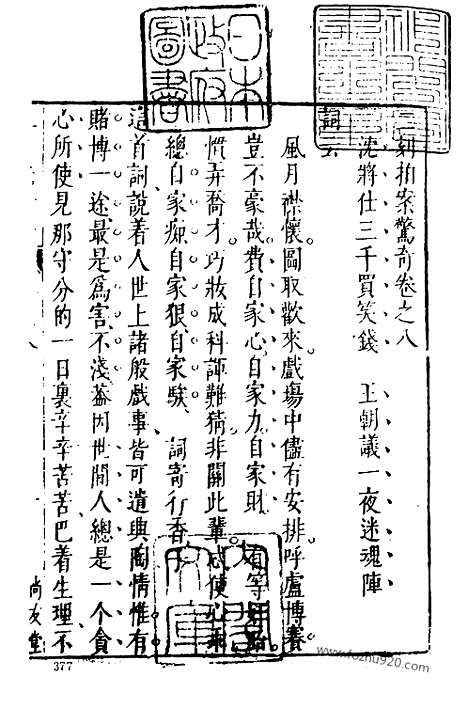 日本
政府
圖書
刻拍案驚奇卷之八
沈將仕三千買笑錢　王朝議一夜迷魂陣
詞云
風月襟懷圖取歡來戲場中儘有安排呼盧博賽
豈不豪哉費自家心自家力自家財　有等奸
慣弄喬才巧妝成科諢難猜非關此輩忒使心乖
總自家癡自家狠自家騃　詞寄行香子
這首詞說着人世上諸般戲事皆可遣興陶情惟有
賭博一途最是爲害不淺蓋因世間人總是一個貪
心所使見那守分的一日裏辛辛苦苦巴着生理不
尚友堂
377
www.fozhu920.com